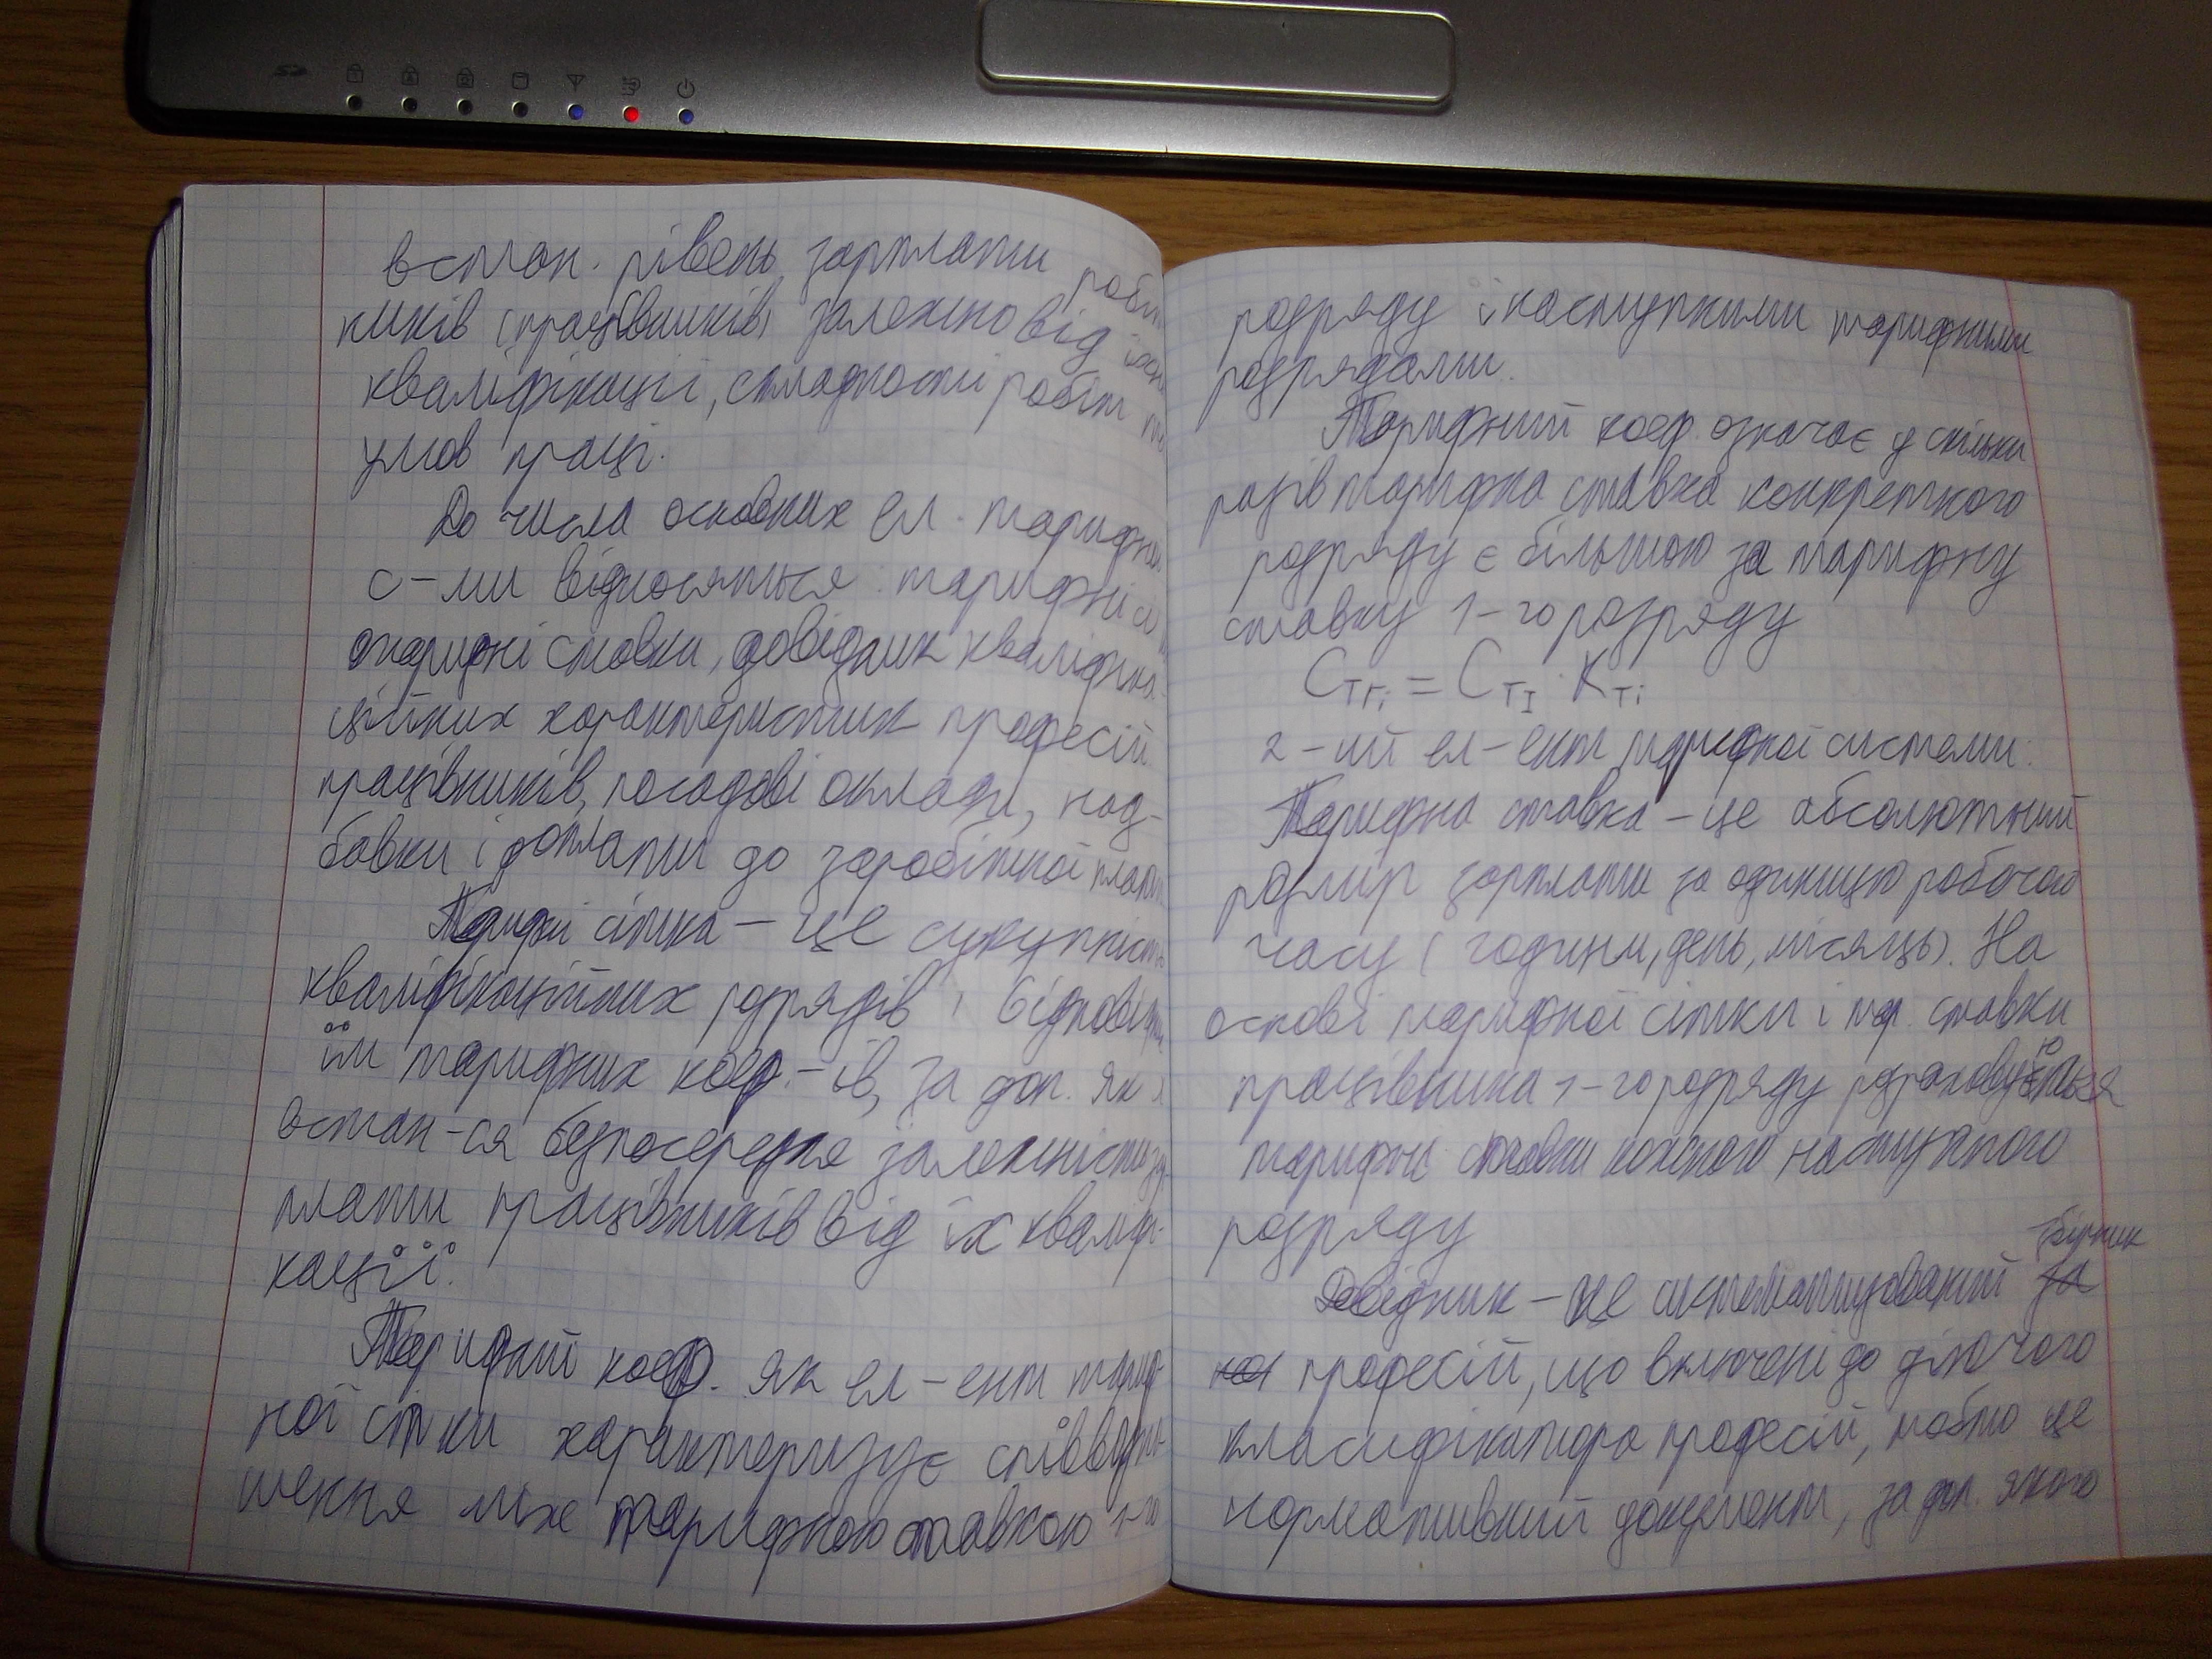 встан. рівень зарплати робіт
ників (працівників) залежно від їхн
кваліфікації, складності робіт
умов праці.
До числа основних ел. тарифн
с-ми відносяться: тарифні сі
тарифні ставки, довідник кваліфіка
ційних характеристик професій
працівників, посадові оклади, над-
бавки і доплати до заробітної плати
Тарифні сітка – це сукупність
кваліфікаційних розрядів і відповідн
їм тарифних коеф.-ів, за доп. як
встан-ся безпосередня залежність за
плати працівників від їх кваліфі-
кації.
Тарифний коеф. як ел-ент тариф-
ної сітки характеризує співвідно-
шення між тарифною ставкою 1-го
розряду і наступними тарифними
розрядами.
Тарифний коеф. означає у скільки
разів тарифна ставка конкретного
розряду є більшою за тарифну
ставку 1-го розряду
Стгі = СтI · Kті
2-ий ел-ент тарифної системи:
Тарифна ставка – це абсолютний
розмір зарплати за одиницю робочого
часу (години, день, місяць). На
основі тарифної сітки і тар. ставки
працівника 1-го розряду розраховуються
тарифні ставки кожного наступного
розряду
збірник
Довідник – це систематизований за
професій, що включені до діючого
класифікатора професій, тобто це
нормативний документ, за доп. якого